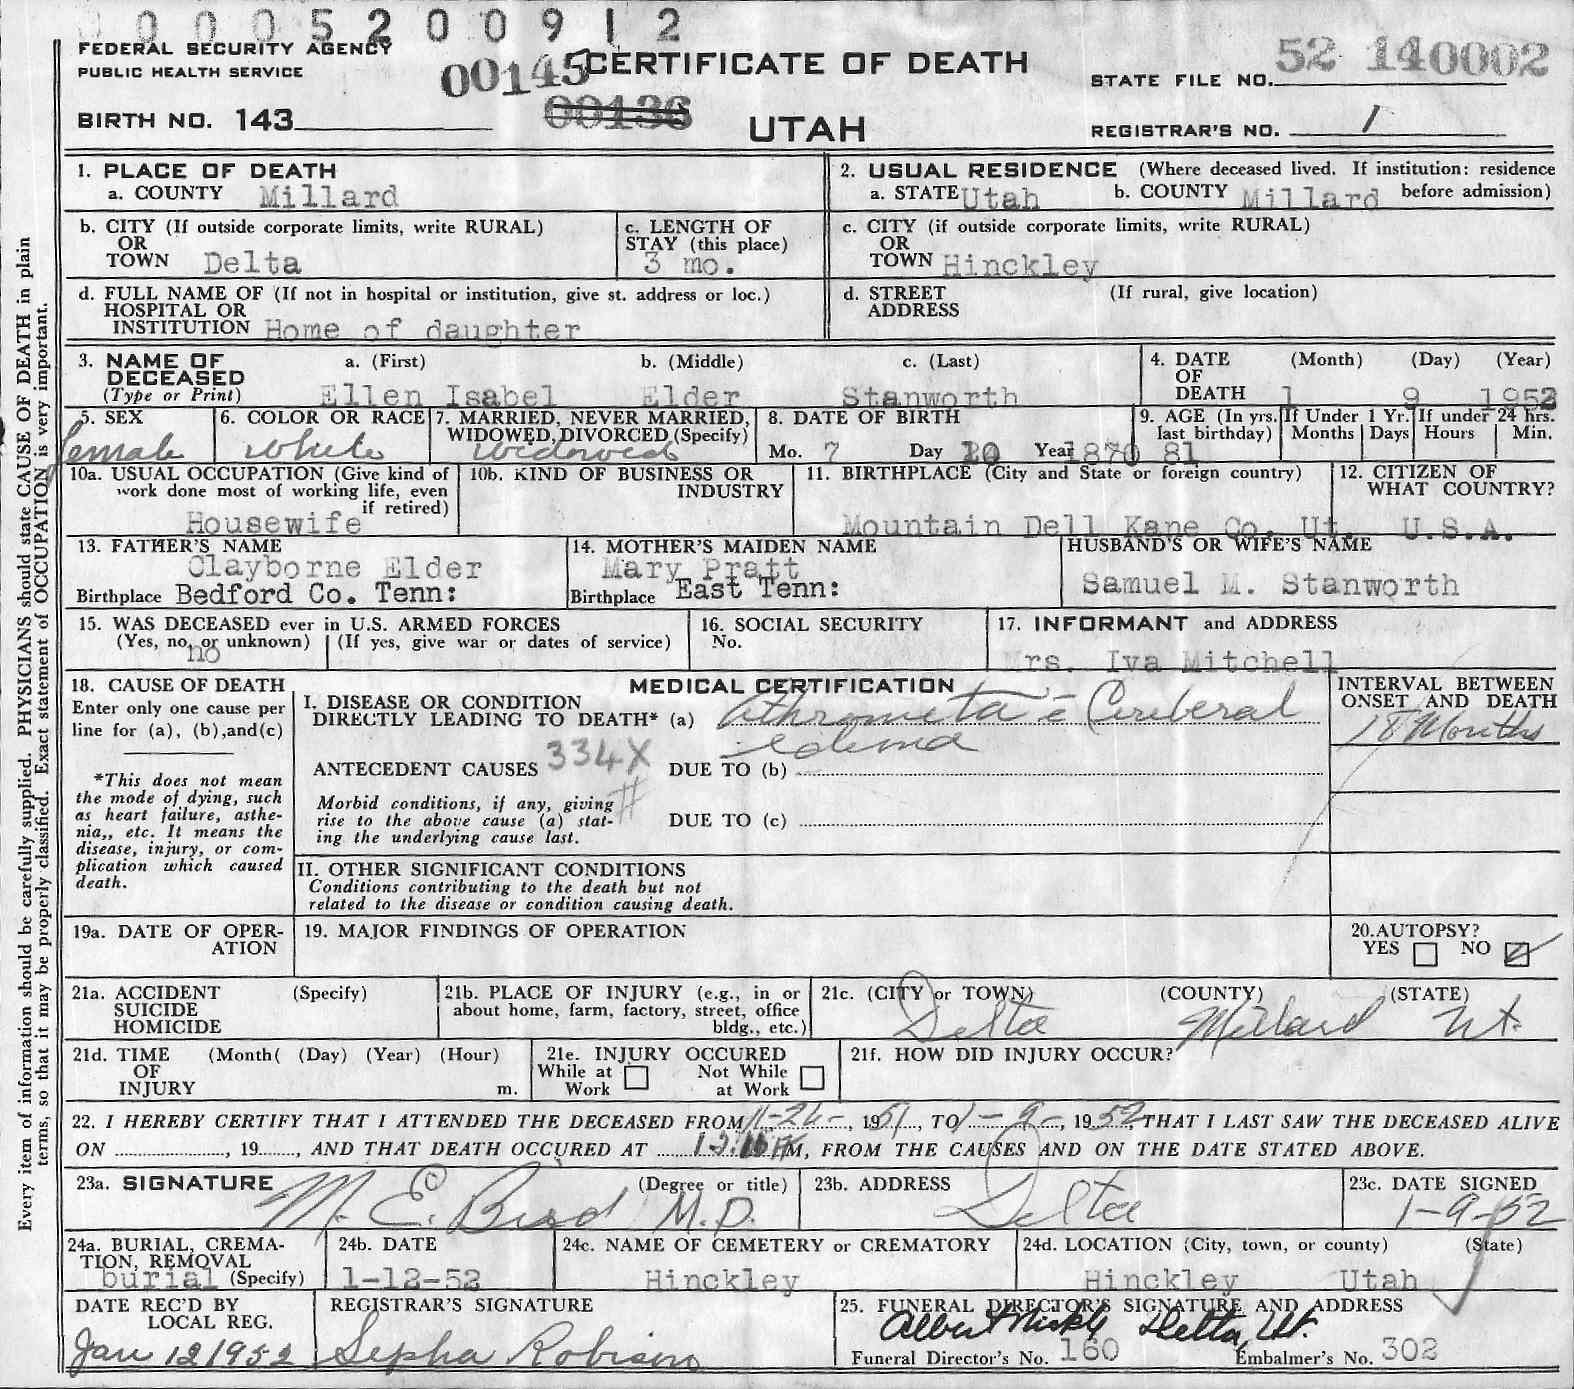 0 0 0 5 2 0 0 9 1 2
FEDERAL SECURITY AGENCY
PUBLIC HEALTH SERVICE
00145
CERTIFICATE OF DEATH
STATE FILE NO. 52 140002
BIRTH NO. 143
00136
UTAH
REGISTRAR'S NO. 1
1. PLACE OF DEATH
a. COUNTY Millard
2. USUAL RESIDENCE (Where deceased lived. If institution: residence
a. STATE Utah b. COUNTY Millard before admission)
b. CITY (If outside corporate limits, write RURAL)
OR
TOWN Delta
c. LENGTH OF
STAY (this place)
3 mo.
c. CITY (if outside corporate limits, write RURAL)
OR
TOWN Hinckley
d. FULL NAME OF (If not in hospital or institution, give st. address or loc.)
HOSPITAL OR
INSTITUTION Home of daughter
d. STREET (If rural, give location)
ADDRESS
3. NAME OF a. (First) b. (Middle) c. (Last)
DECEASED
(Type or Print) Ellen Isabel Elder Stanworth
4. DATE (Month) (Day) (Year)
OF
DEATH 1 9 1952
5. SEX
female
6. COLOR OR RACE
White
7. MARRIED, NEVER MARRIED,
WIDOWED, DIVORCED (Specify)
Widowed
8. DATE OF BIRTH
Mo. 7 Day 20 Year 1870
9. AGE (In yrs.
last birthday)
81
If Under 1 Yr.
Months Days
If under 24 hrs.
Hours Min.
10a. USUAL OCCUPATION (Give kind of
work done most of working life, even
if retired)
Housewife
10b. KIND OF BUSINESS OR
INDUSTRY
11. BIRTHPLACE (City and State or foreign country)
Mountain Dell Kane Co. Ut.
12. CITIZEN OF
WHAT COUNTRY?
U.S.A.
13. FATHER'S NAME
Clayborne Elder
Birthplace Bedford Co. Tenn:
14. MOTHER'S MAIDEN NAME
Mary Pratt
Birthplace East Tenn:
HUSBAND'S OR WIFE'S NAME
Samuel M. Stanworth
15. WAS DECEASED ever in U.S. ARMED FORCES
(Yes, no, or unknown) (If yes, give war or dates of service)
no
16. SOCIAL SECURITY
No.
17. INFORMANT and ADDRESS
Mrs. Iva Mitchell
18. CAUSE OF DEATH
Enter only one cause per
line for (a), (b),and(c)
*This does not mean
the mode of dying, such
as heart failure, asthe-
nia,, etc. It means the
disease, injury, or com-
plication which caused
death.
MEDICAL CERTIFICATION
I. DISEASE OR CONDITION
DIRECTLY LEADING TO DEATH* (a) Cerebral
edema
ANTECEDENT CAUSES 334X DUE TO (b)
Morbid conditions, if any, giving
rise to the above cause (a) stat-
ing the underlying cause last.
DUE TO (c)
INTERVAL BETWEEN
ONSET AND DEATH
18 Months
II. OTHER SIGNIFICANT CONDITIONS
Conditions contributing to the death but not
related to the disease or condition causing death.
19a. DATE OF OPER-
ATION
19. MAJOR FINDINGS OF OPERATION
20.AUTOPSY?
YES NO
21a. ACCIDENT (Specify)
SUICIDE
HOMICIDE
21b. PLACE OF INJURY (e.g., in or
about home, farm, factory, street, office
bldg., etc.)
21c. (CITY or TOWN) (COUNTY) (STATE)
Delta Millard Ut.
21d. TIME (Month( (Day) (Year) (Hour)
OF
INJURY m.
21e. INJURY OCCURED
While at Not While
Work at Work
21f. HOW DID INJURY OCCUR?
22. I HEREBY CERTIFY THAT I ATTENDED THE DECEASED FROM 11-26-, 1951, TO 1-9-, 1952 THAT I LAST SAW THE DECEASED ALIVE
ON , 19 , AND THAT DEATH OCCURED AT M, FROM THE CAUSES AND ON THE DATE STATED ABOVE.
23a. SIGNATURE (Degree or title)
M. E. Bird M.D.
23b. ADDRESS
Delta
23c. DATE SIGNED
1-9-52
24a. BURIAL, CREMA-
TION, REMOVAL
burial (Specify)
24b. DATE
1-12-52
24c. NAME OF CEMETERY or CREMATORY
Hinckley
24d. LOCATION (City, town, or county) (State)
Hinckley Utah
DATE REC'D BY
LOCAL REG.
Jan 12 1952
REGISTRAR'S SIGNATURE
Sepha Robison
25. FUNERAL DIRECTOR'S SIGNATURE AND ADDRESS
Albert Delta, Ut.
Funeral Director's No. 160 Embalmer's No. 302
Every item of information should be carefully supplied. PHYSICIANS should state CAUSE OF DEATH in plain
terms, so that it may be properly classified. Exact statement of OCCUPATION is very important.